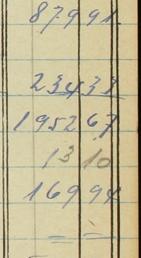 87991.
23433
195267
1310
16994